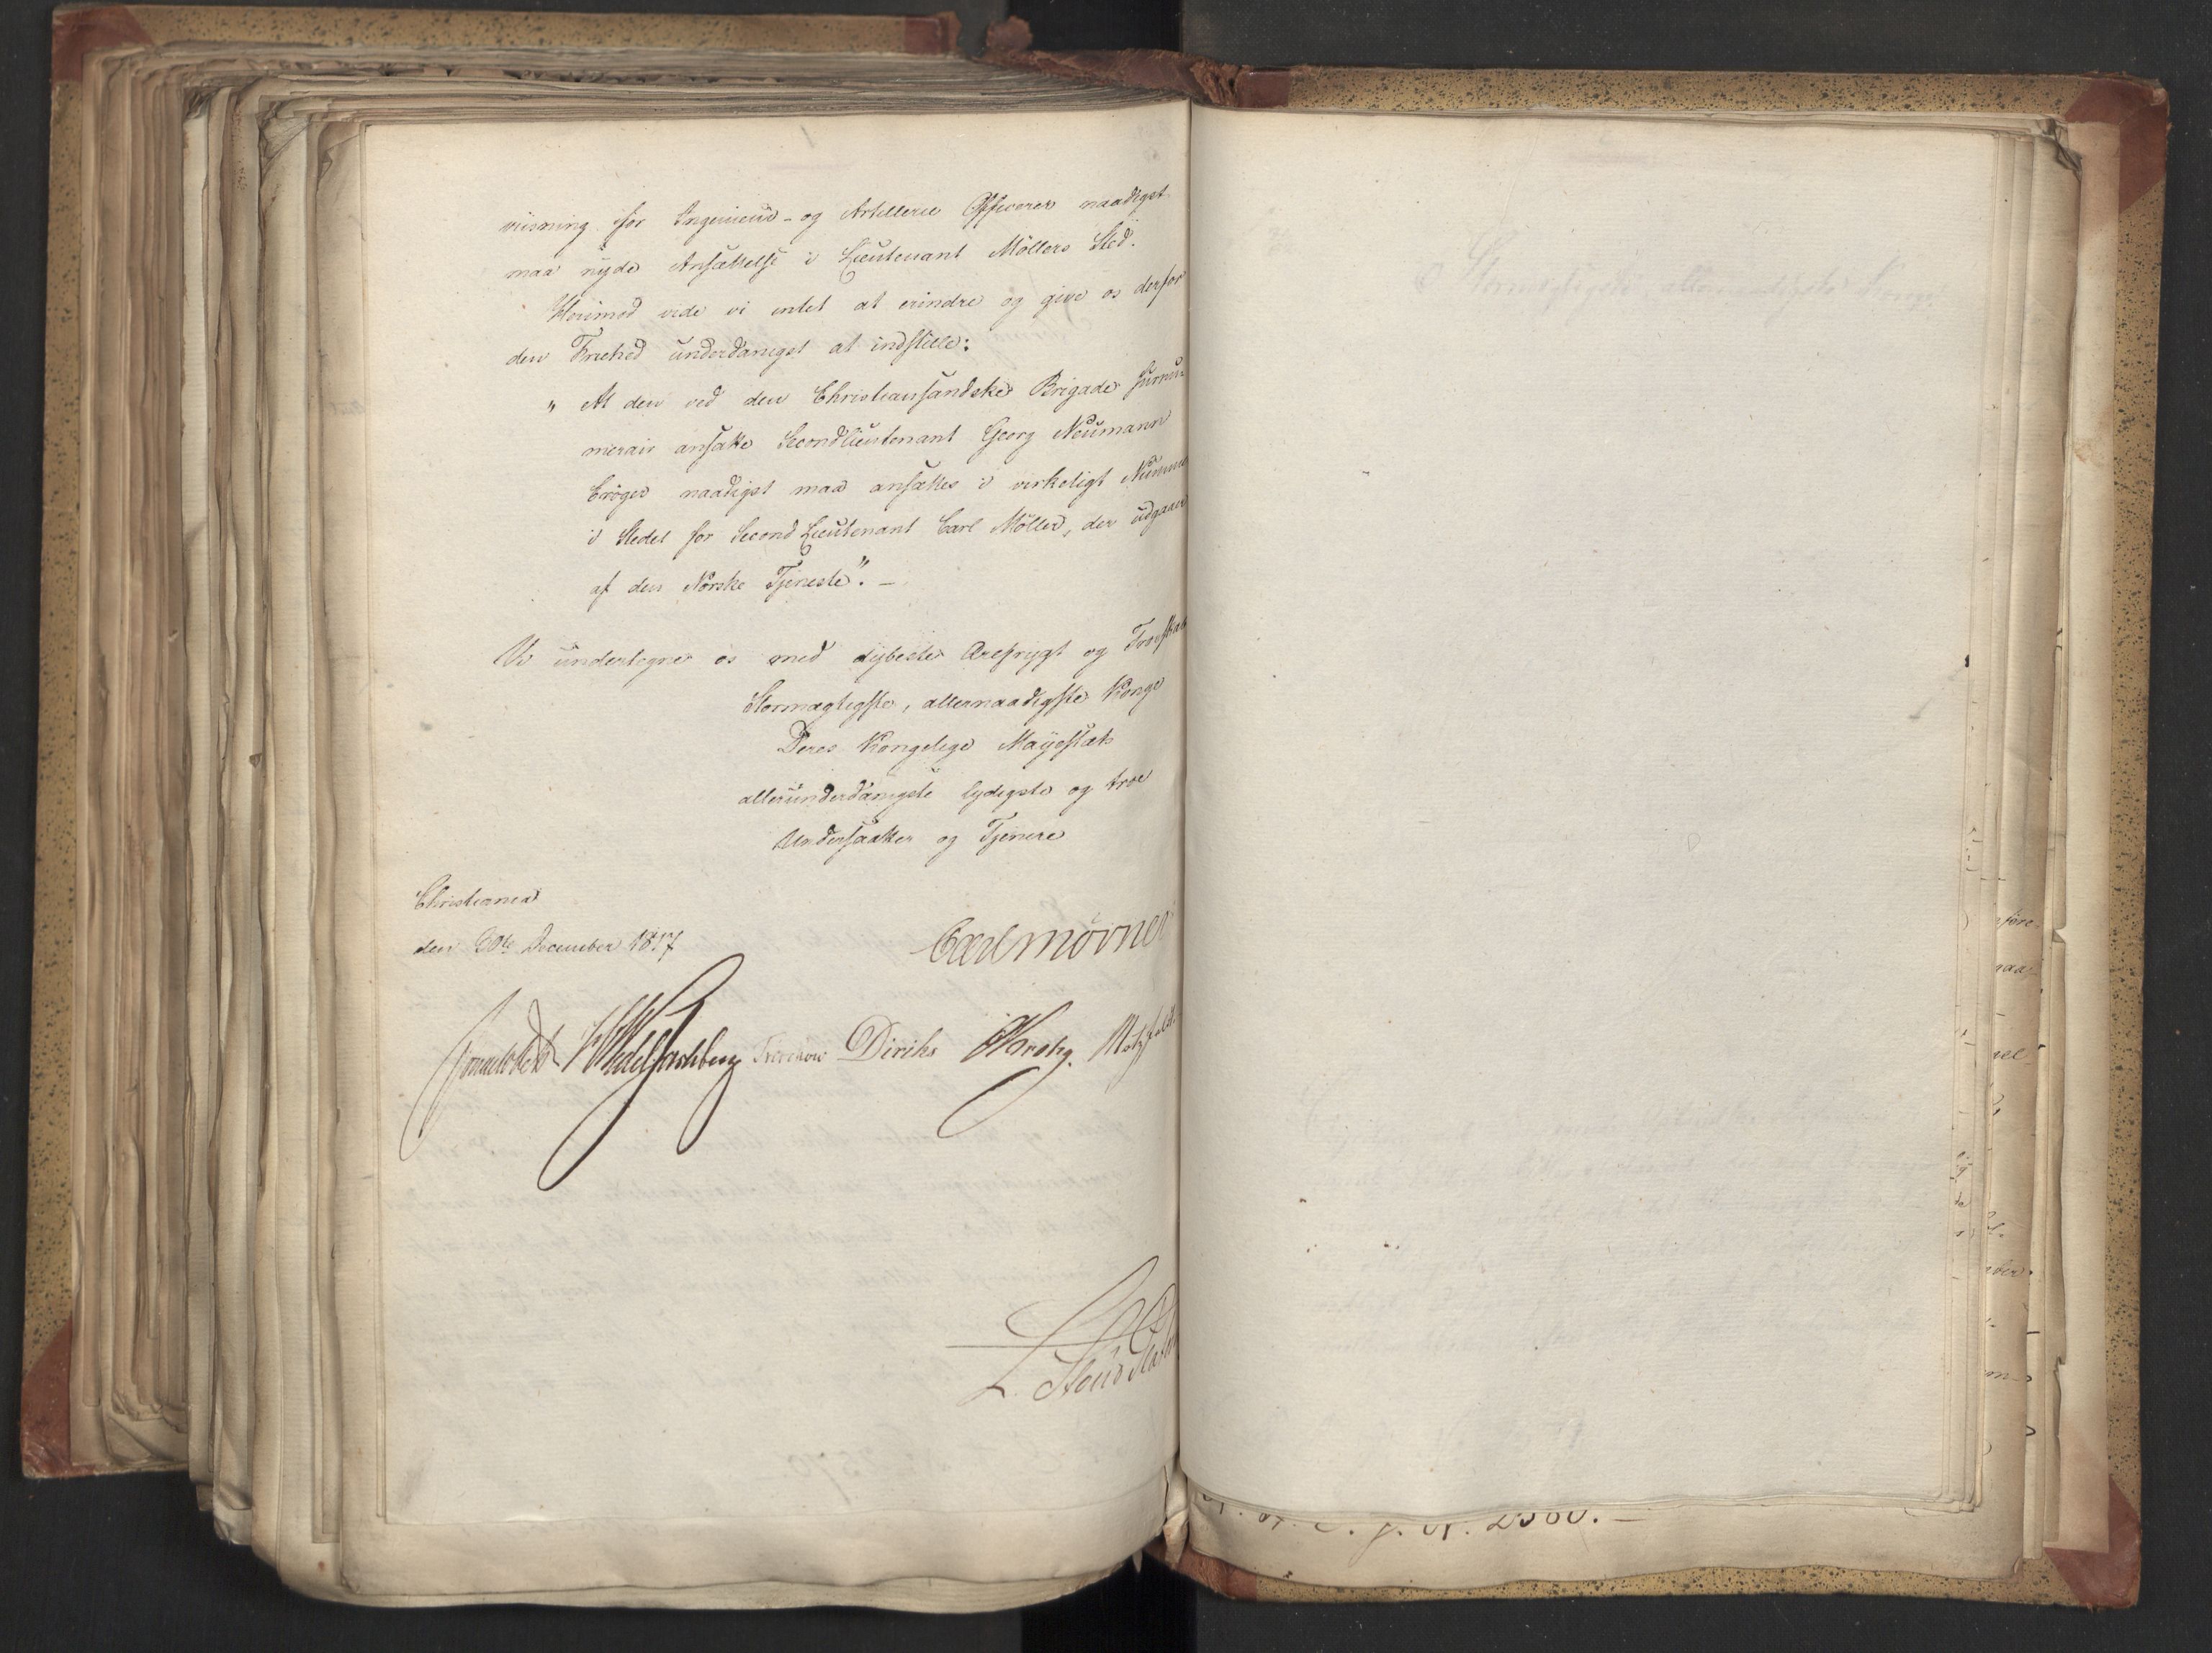 viisning for Ingenieur- og Artillerie Officerer naadigst
maa nyde Ansættelse i Lieutenant Møllers Sted.
Herimod vide vi intet at erindre og give os derfor
den Friehed underdanigst at indstille:
" At den ved den Christiansandske Brigade surnu-
merair ansatte Secondlieutenant Georg Neumann
Crøger naadigst maa ansættes i virkeligt Nummer
i Stedet for Second Lieutenant Carl Møller, der udgaaer
af den Norske Tjeneste". -
Vi undertegne os med dybeste Ærefrygt og Troeskab
Stormægtigste, allernaadigste Konge
Deres Kongelige Mayestæts
allerunderdanigste lydigste og troe
Undersaatter og Tjenere
Christiania
den 30te December 1817
Carl Mörner
Sommerhielm Wedel Jarlsberg Treschow Diriks Krohg. Motzfeldt
L. Stoud Platou
J. N. 2560. -